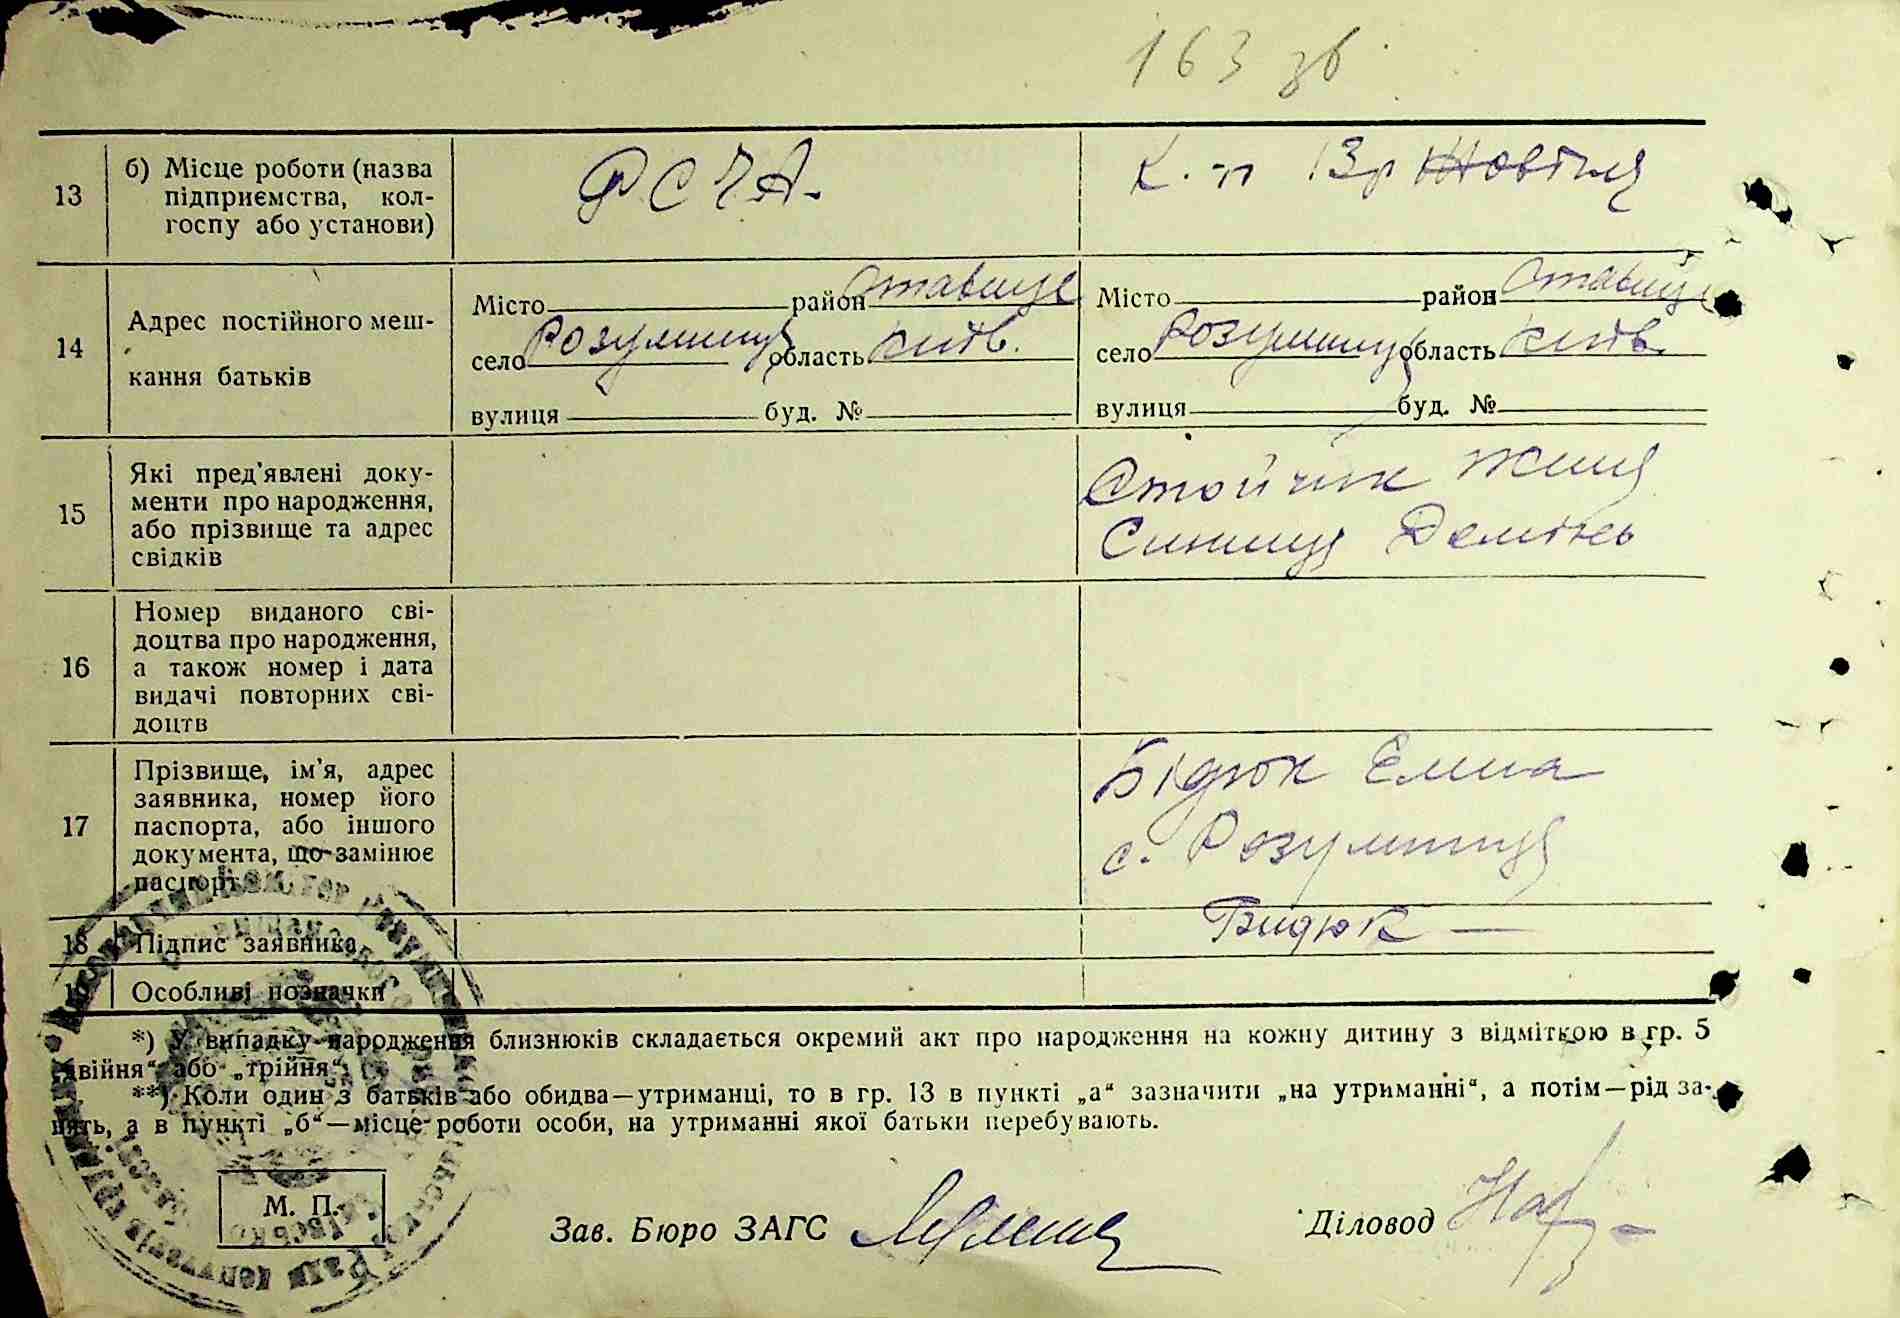 163 зв.
13 б) Місце роботи (назва підприємства, колгоспу або установи) РСЧА. К. п 13р Жовтня
14 Адрес постійного мешкання батьків
Місто район Ставище Місто район Ставище
село Розумниця область Київ. село Розумниця область Київ.
вулиця буд. № вулиця буд. №
15 Які пред'явлені документи про народження, або прізвище та адрес свідків
Стойчик
Синиця
16 Номер виданого свідоцтва про народження, а також номер і дата видачі повторних свідоцтв
17 Прізвище, ім'я, адрес заявника, номер його паспорта, або іншого документа, що замінює паспорт
Бідюк Елина
с. Розумниця
18 Підпис заявника Бидюк
19 Особливі позначки
*) У випадку народження близнюків складається окремий акт про народження на кожну дитину з відміткою в гр. 5
„двійня“ або „трійня“.
**) Коли один з батьків або обидва—утриманці, то в гр. 13 в пункті „а“ зазначити „на утриманні“, а потім—рід за-
нять, а в пункті „б“—місце роботи особи, на утриманні якої батьки перебувають.
М. П.
Зав. Бюро ЗАГС
Діловод